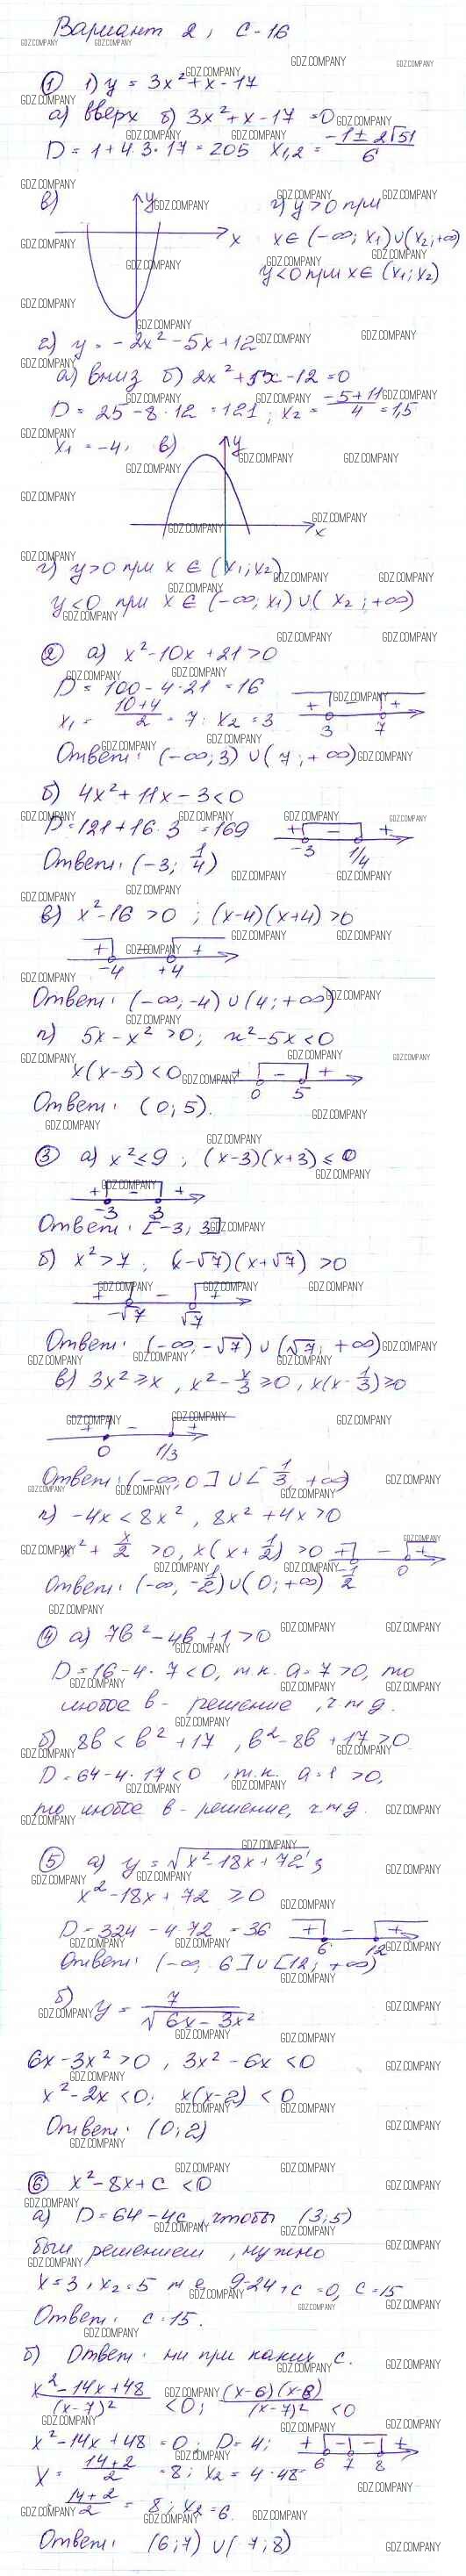 Вариант 2, С-16
① 1) y = 3x² + x - 17
а) вверх б) 3x² + x - 17 = 0
D = 1 + 4·3·17 = 205 x₁,₂ = (-1 ± 2√51)/6
в) y x
г) y > 0 при x ∈ (-∞; x₁) ∪ (x₂; +∞)
y < 0 при x ∈ (x₁; x₂)
2) y = -2x² - 5x + 12
а) вниз б) 2x² + 5x - 12 = 0
D = 25 - 8·12 = 121; x₂ = (-5 + 11)/4 = 1,5
x₁ = -4, в) y x
г) y > 0 при x ∈ (x₁; x₂)
y < 0 при x ∈ (-∞; x₁) ∪ (x₂; +∞)
② а) x² - 10x + 21 > 0
D = 100 - 4·21 = 16
x₁ = (10 + 4)/2 = 7; x₂ = 3 + - + 3 7
Ответ: (-∞; 3) ∪ (7; +∞)
б) 4x² + 11x - 3 < 0
D = 121 + 16·3 = 169 + - + -3 1/4
Ответ: (-3; 1/4)
в) x² - 16 > 0; (x-4)(x+4) > 0
+ - + -4 +4
Ответ: (-∞, -4) ∪ (4; +∞)
г) 5x - x² > 0; x² - 5x < 0
x(x-5) < 0 + - + 0 5
Ответ: (0; 5).
③ а) x² ≤ 9; (x-3)(x+3) ≤ 0
+ - + -3 3
Ответ: [-3; 3]
б) x² > 7; (x-√7)(x+√7) > 0
+ - + -√7 √7
Ответ: (-∞, -√7) ∪ (√7; +∞)
в) 3x² ≥ x, x² - x/3 ≥ 0, x(x - 1/3) ≥ 0
+ - + 0 1/3
Ответ: (-∞, 0] ∪ [1/3, +∞)
г) -4x < 8x², 8x² + 4x > 0
x² + x/2 > 0, x(x + 1/2) > 0 + - + -1/2 0
Ответ: (-∞, -1/2) ∪ (0; +∞)
④ а) 7b² - 4b + 1 > 0
D = 16 - 4·7 < 0, т.к. a = 7 > 0, то
любое b - решение, ч.т.д.
б) 8b < b² + 17, b² - 8b + 17 > 0
D = 64 - 4·17 < 0, т.к. a = 1 > 0,
то любое b - решение, ч.т.д.
⑤ а) y = √(x² - 18x + 72);
x² - 18x + 72 ≥ 0
D = 324 - 4·72 = 36 + - + 6 12
Ответ: (-∞; 6] ∪ [12; +∞)
б) y = 7/√(6x - 3x²)
6x - 3x² > 0, 3x² - 6x < 0
x² - 2x < 0; x(x-2) < 0
Ответ: (0; 2)
⑥ x² - 8x + c < 0
а) D = 64 - 4c, чтобы (3; 5)
был решением, нужно
x = 3, x₂ = 5 т.е. 9 - 24 + c = 0, c = 15
Ответ: c = 15.
б) Ответ: ни при каких c.
(x² - 14x + 48)/(x-7)² < 0; (x-6)(x-8)/(x-7)² < 0
x² - 14x + 48 = 0; D = 4; + - - + 6 7 8
x = (14 + 2)/2 = 8; x₂ = 4·48
(14 + 2)/2 = 8; x₂ = 6.
Ответ: (6; 7) ∪ (7; 8)
GDZ.COMPANY